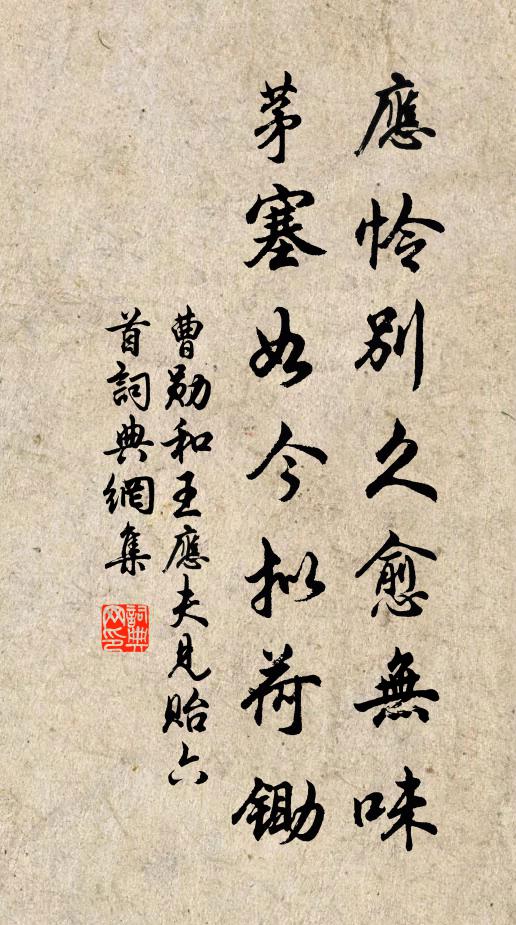 應怜別久愈無味
茅塞如今拟荷鋤
曹勛和王應夫見貽六
首詞典網集
詞典
网印